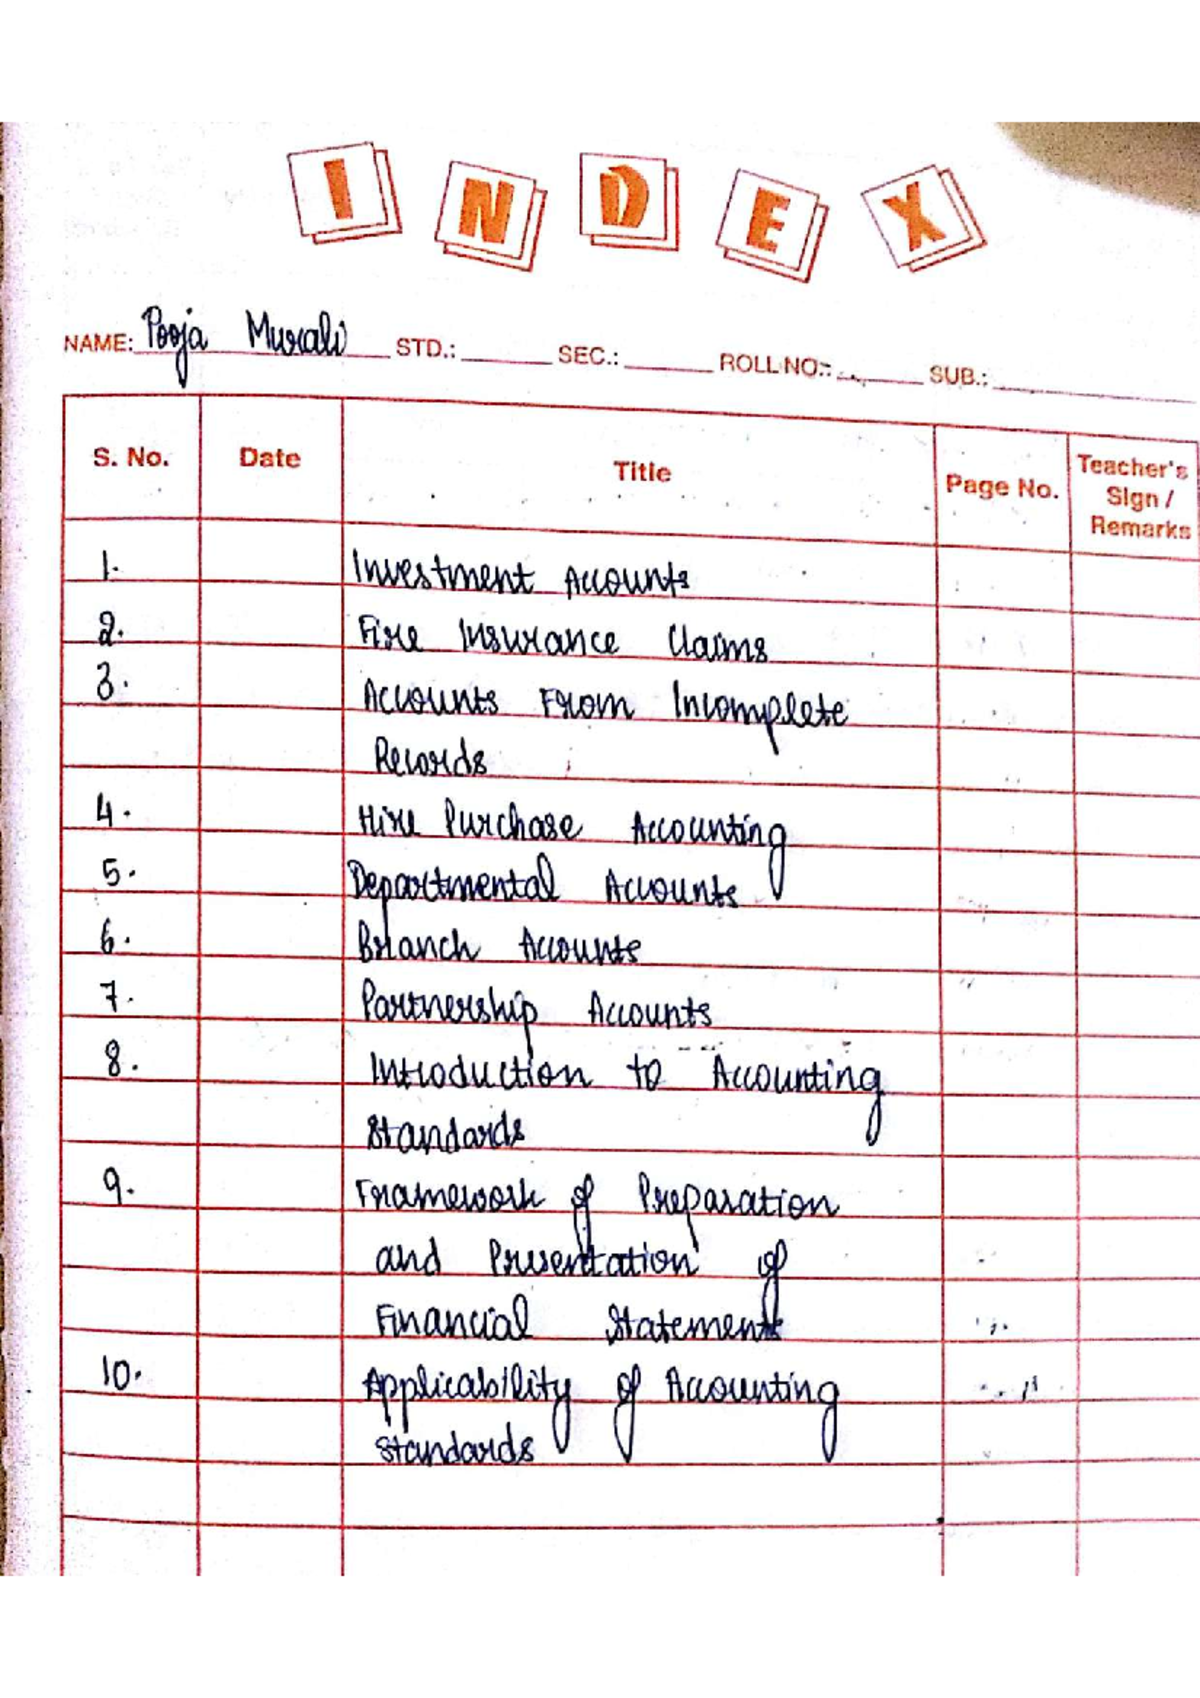 INDEX
NAME: Pooja Murali STD.: SEC.: ROLL NO.: SUB.:
S. No. Date Title Page No. Teacher's Sign / Remarks
1. Investment Accounts
2. Fire Insurance Claims
3. Accounts From Incomplete
Records
4. Hire Purchase Accounting
5. Departmental Accounts
6. Branch Accounts
7. Partnership Accounts
8. Introduction to Accounting
Standards
9. Framework of Preparation
and Presentation of
Financial Statements
10. Applicability of Accounting
Standards